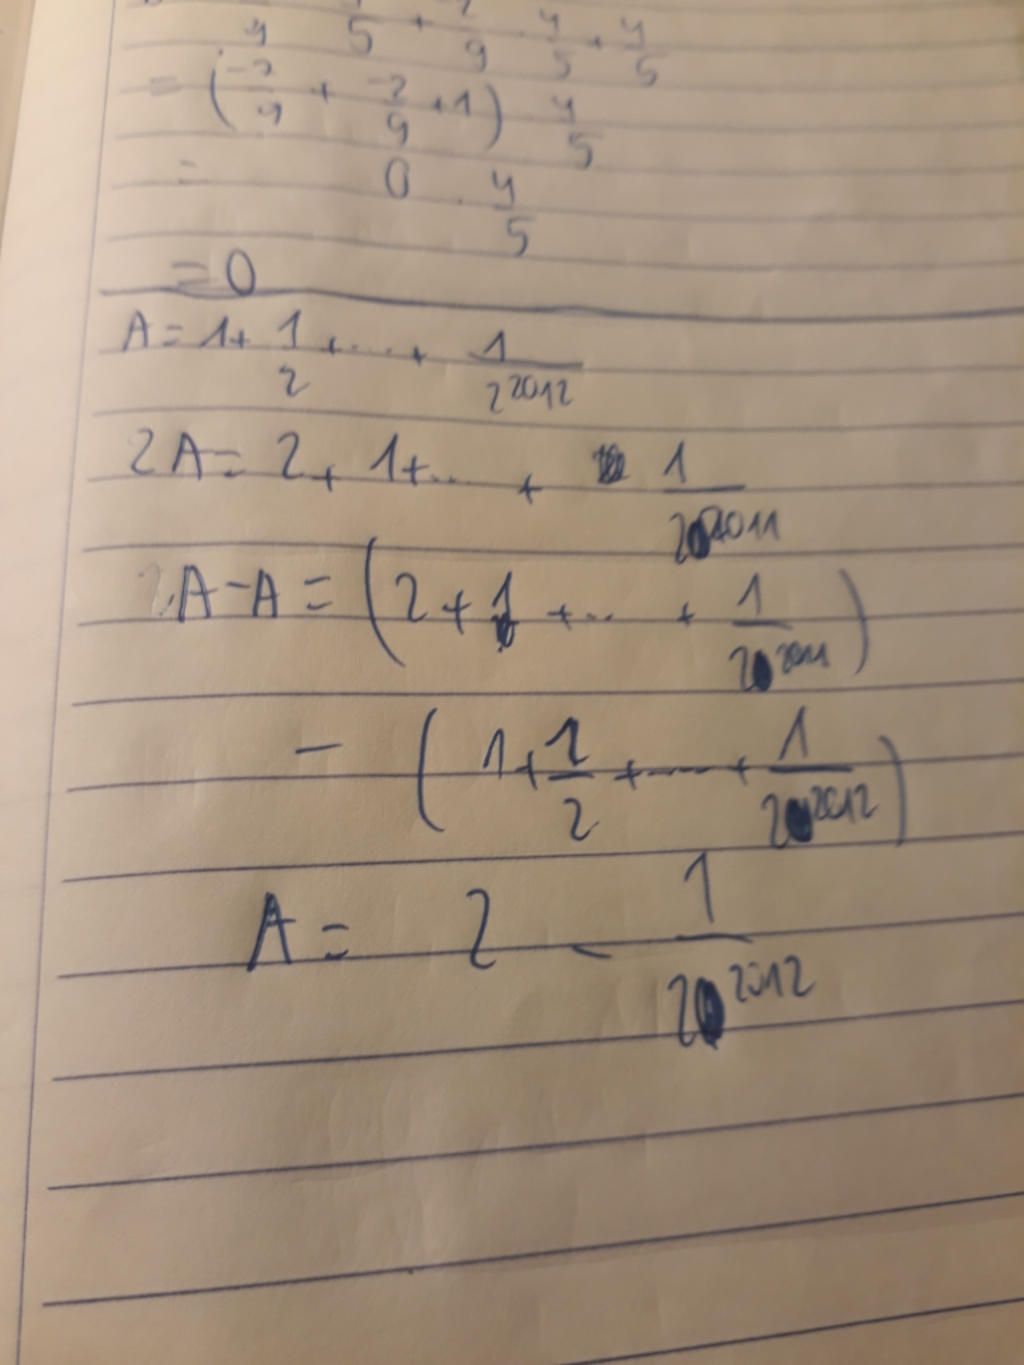 5 + 9 · 4/5 + 4/5
= (-7/9 + -2/9 + 1) 4/5
= 0 . 4/5
= 0
A = 1 + 1/2 + .... + 1/2^2012
2A = 2 + 1 + ... + 1/2^2011
2A - A = (2 + 1 + ... + 1/2^2011)
- (1 + 1/2 + ..... + 1/2^2012)
A = 2 - 1/2^2012